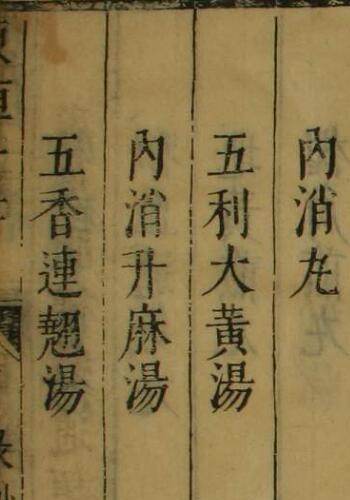 內消丸
五利大黃湯
內消升麻湯
五香連翹湯